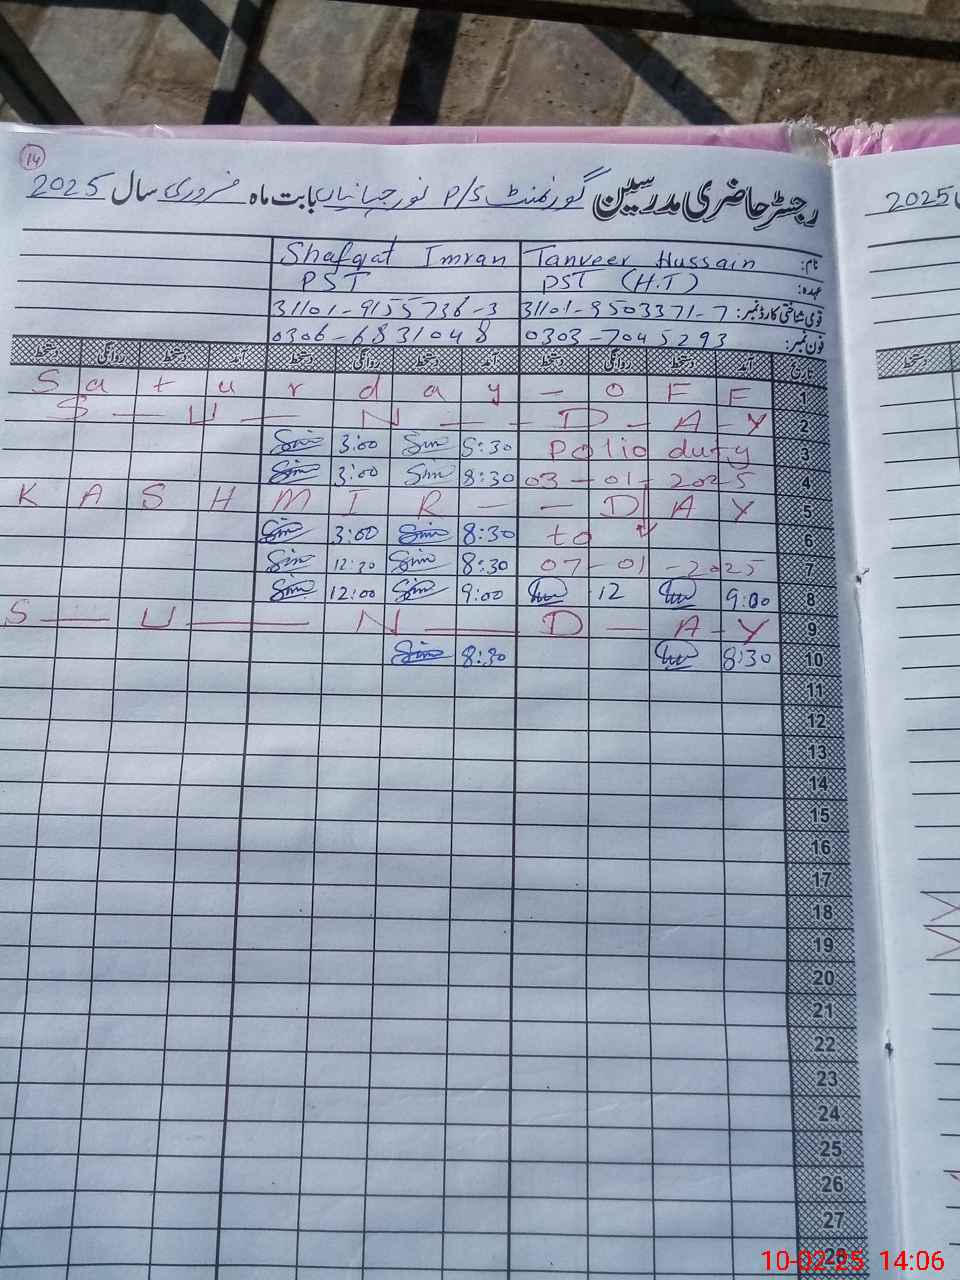 14
رجسٹر حاضری مدرسین گورنمنٹ P/S نور جہانیاں بابت ماہ فروری سال 2025
2025
نام: Tanveer Hussain Shafqat Imran
عہدہ: PST (H.T) PST
قومی شناختی کارڈ نمبر: 31101-9503371-7 31101-9155736-3
فون نمبر: 0303-7045293 0306-6831048
تاریخ آمد دستخط روانگی دستخط آمد دستخط روانگی دستخط آمد دستخط روانگی دستخط
دستخط
Saturday - OFF 1
S - U - N - - D - A - Y 2
Sim 3:00 Sim 8:30 Polio duty 3
Sim 3:00 Sim 8:30 03-01-2025 4
KASHMIR - - DAY 5
Sim 3:00 Sim 8:30 to 6
Sim 12:30 Sim 8:30 07-01-2025 7
Sim 12:00 Sim 9:00 12 9:00 8
S - U - N - D - A - Y 9
Sim 8:30 8:30 10
11
12
13
14
15
16
17
18
19
20
21
22
23
24
25
26
27
28
10-02-25 14:06